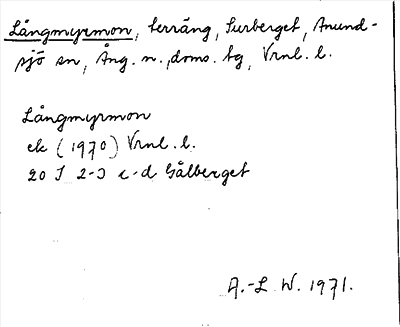 Långmyrmon, terräng, Surberget, Anund-
sjö sn, Ång. n., doms. tg, Vrnl. l.
Långmyrmon
ek (1970) Vrnl. l.
20 I 2-3 c-d Gålberget
A.-L W. 1971.